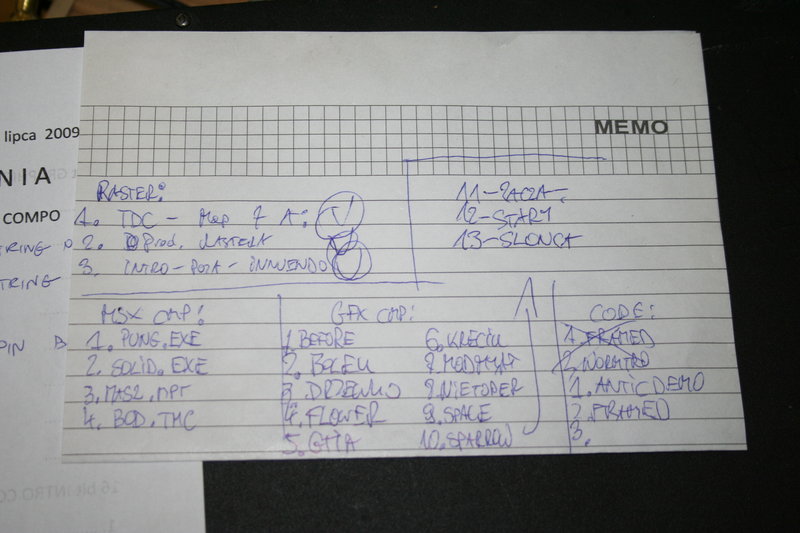 lipca 2009
NIA
COMPO
TRING
STRING
PIN
MEMO
RASTER:
1. TDC - Map 7 A:
2. Prod. RASTERA
3. INTRO - POZA - INNUENDO
11 -
12 - START
13 - SLONCA
MSX CMP:
1. PONG.EXE
2. SOLID.EXE
3. MAS2.MPT
4. BOD.TMC
GFX CMP:
1. BEFORE
2. BOLEK
3. DRZEWKO
4. FLOWER
5. GTIA
6. KRECIK
7.
8. NIETOPER
9. SPACE
10. SPARROW
CODE:
1. FRAMED
2. NORMTRO
1. ANTIC DEMO
2. FRAMED
3.